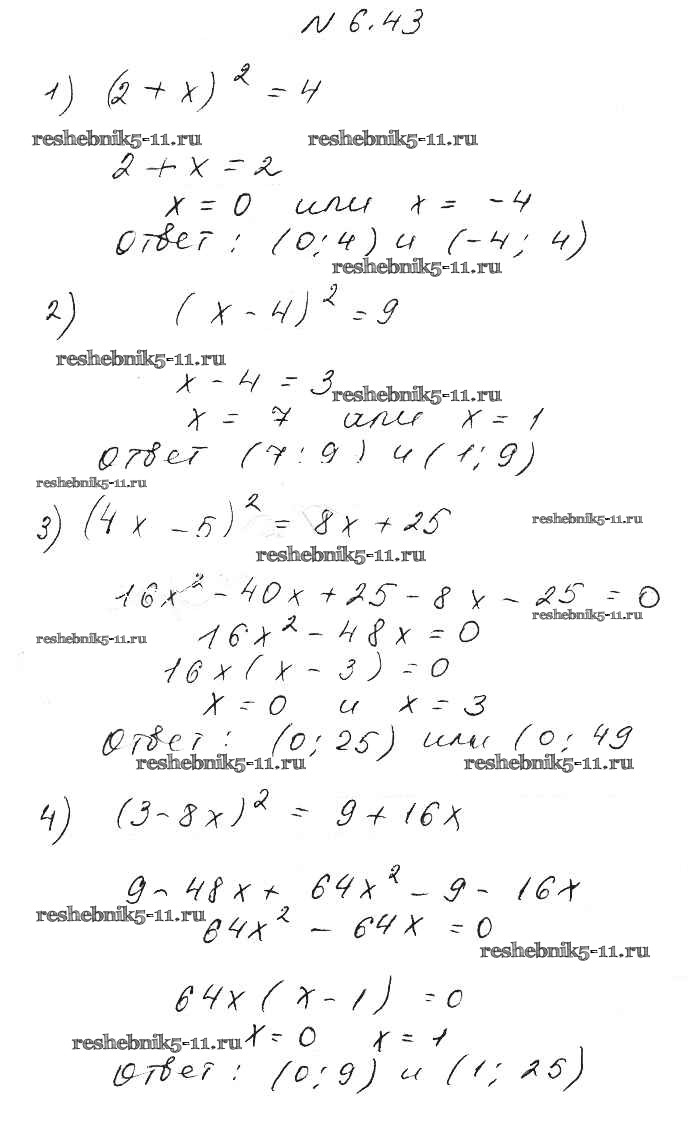 N 6.43
1) (2 + x)² = 4
reshebnik5-11.ru reshebnik5-11.ru
2 + x = 2
x = 0 или x = -4
Ответ: (0; 4) и (-4; 4)
reshebnik5-11.ru
2) (x - 4)² = 9
reshebnik5-11.ru
x - 4 = 3
reshebnik5-11.ru
x = 7 или x = 1
Ответ (7; 9) и (1; 9)
reshebnik5-11.ru
3) (4x - 5)² = 8x + 25
reshebnik5-11.ru
reshebnik5-11.ru
16x² - 40x + 25 - 8x - 25 = 0
reshebnik5-11.ru
reshebnik5-11.ru
16x² - 48x = 0
16x(x - 3) = 0
x = 0 и x = 3
Ответ: (0; 25) или (0; 49
reshebnik5-11.ru reshebnik5-11.ru
4) (3 - 8x)² = 9 + 16x
9 - 48x + 64x² - 9 - 16x
reshebnik5-11.ru
64x² - 64x = 0
reshebnik5-11.ru
64x(x - 1) = 0
reshebnik5-11.ru
x = 0 x = 1
Ответ: (0; 9) и (1; 25)